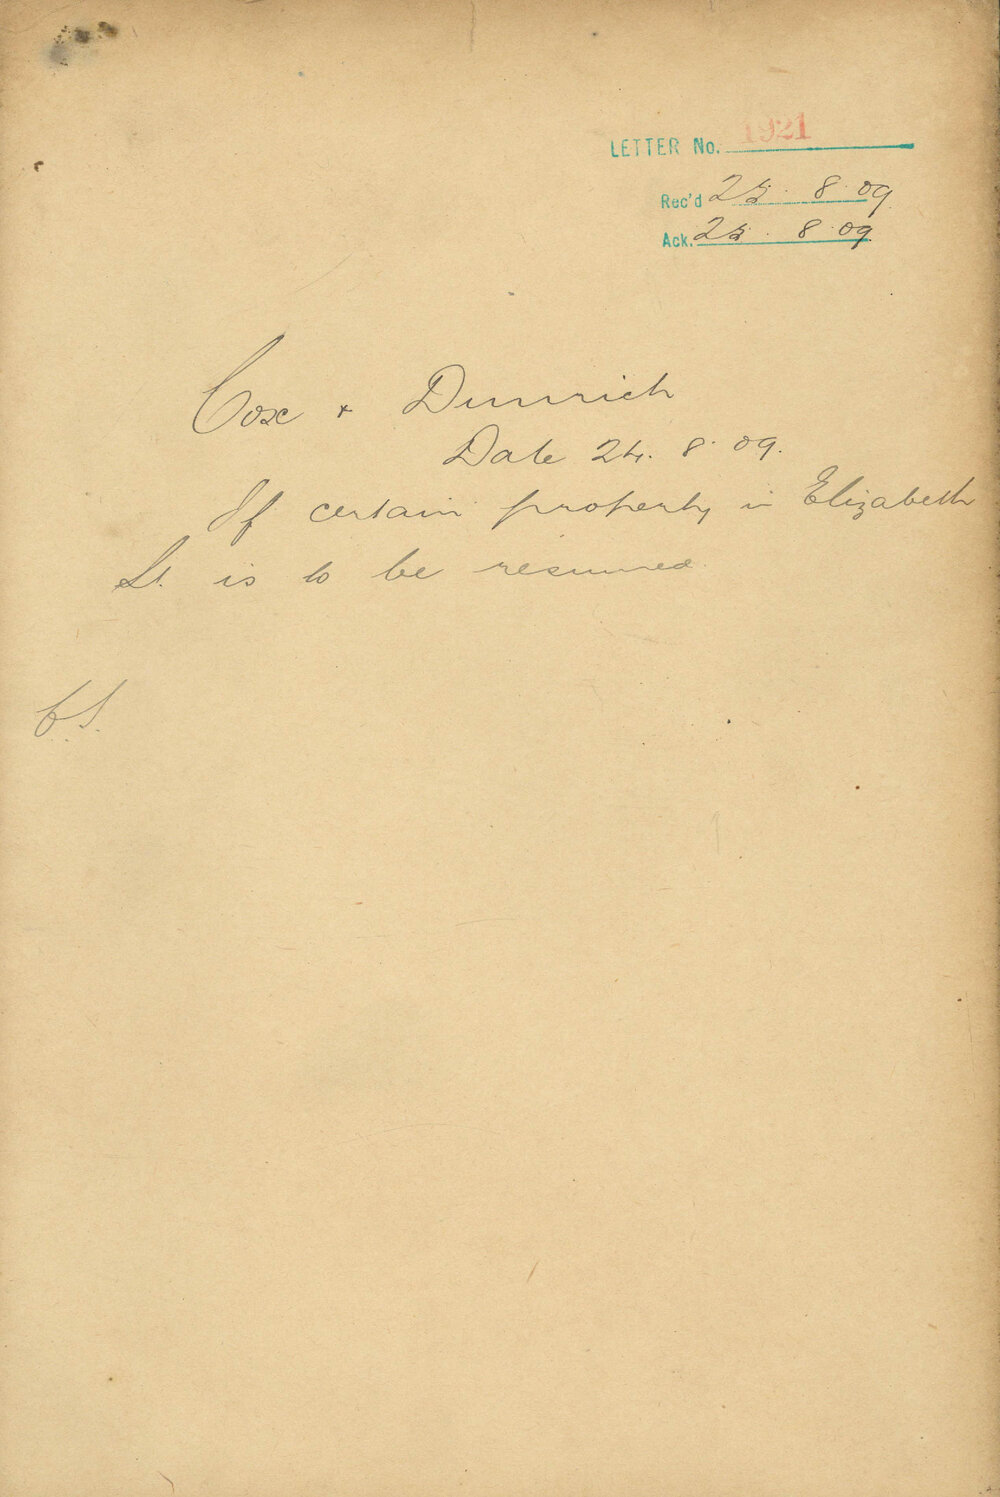 LETTER No. 1921
Rec'd 25. 8. 09.
Ack. 25. 8. 09
Cox & Dimrich
Date 24. 8. 09.
If certain property in Elizabeth
St. is to be resumed.